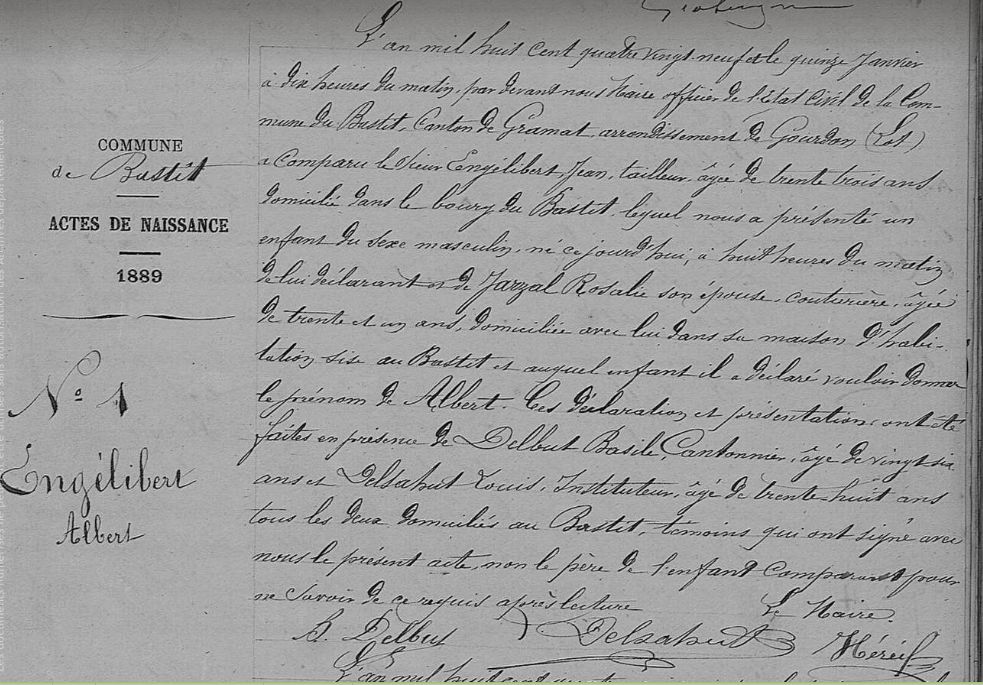 COMMUNE
de Bastit
ACTES DE NAISSANCE
1889
N° 1
Engélibert
Albert
L'an mil huit cent quatre vingt-neuf et le quinze Janvier
à dix heures du matin, par devant nous Maire officier de l'Etat civil de la Com-
mune du Bastit, Canton de Gramat, arrondissement de Gourdon (Lot)
a comparu le sieur Engélibert, Jean, tailleur, âgé de trente trois ans
domicilié dans le bourg du Bastit, lequel nous a présenté un
enfant du sexe masculin, né ce jourd'hui, à huit heures du matin
de lui déclarant et de Jarzal Rosalie son épouse, couturière, âgée
de trente et un ans, domiciliée avec lui dans sa maison d'habi-
tation sise au Bastit et auquel enfant il a déclaré vouloir donner
le prénom de Albert. Ces déclaration et présentation ont été
faites en présence de Delbut Basile, Cantonnier, âgé de vingt six
ans et Delsahut Louis, Instituteur, âgé de trente-huit ans
tous les deux domiciliés au Bastit, témoins qui ont signé avec
nous le présent acte, non le père de l'enfant comparant pour
ne savoir de ce requis après lecture
Le Maire.
B. Delbut Delsahut Héreil
L'an mil huit cent